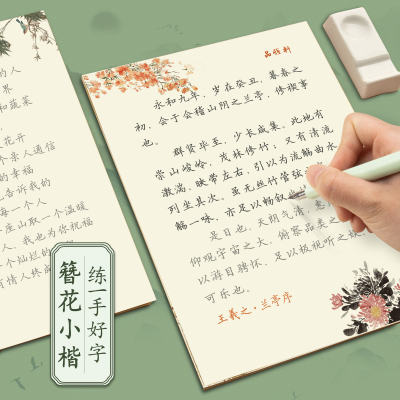 的人
界
和蔬菜
花开
个亲人通信
的幸福
告诉我的
每一个人
座山取一个温暖
人，我也为你祝福
个灿烂的前
有情人终成
永和九年，岁在癸丑，暮春之
初，会于会稽山阴之兰亭，修禊事
也。
群贤毕至，少长咸集。此地有
崇山峻岭，茂林修竹；又有清流
激湍，映带左右，引以为流觞曲水
列坐其次。虽无丝竹管弦
觞一咏，亦足以畅叙
是日也，天朗气清，惠
仰观宇宙之大，俯察品类之
以游目骋怀，足以极视听之
可乐也。
王羲之·兰亭序
簪花小楷
练一手好字